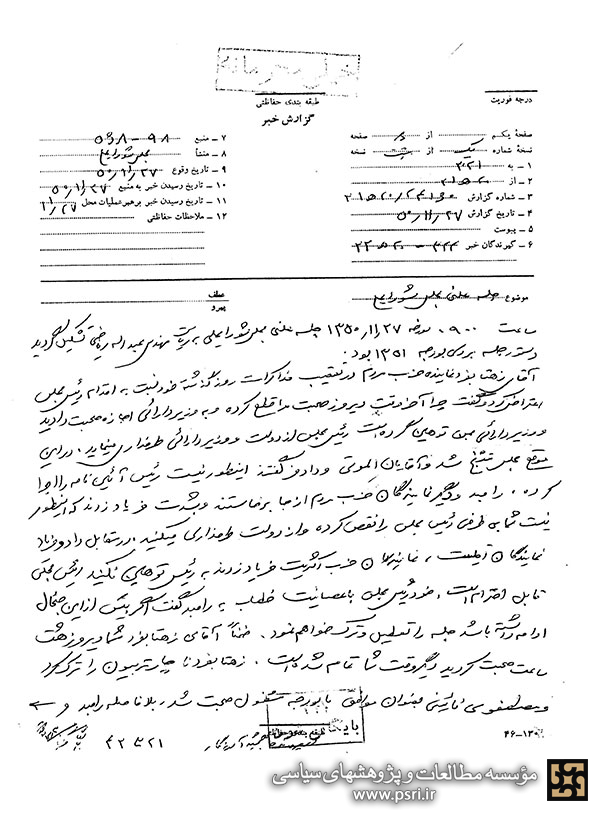 خیلی محرمانه
درجه فوریت
طبقه بندی حفاظتی
گزارش خبر
صفحه یکم از صفحه
نسخه شماره یک از نسخه
۱ - به ۳۲۱
۲ - از ۲۰ ه ۲۱
۳ - شماره گزارش
۴ - تاریخ گزارش ۵۰/۱۱/۲۷
۵ - پیوست
۶ - گیرندگان خبر
۷ - منبع
۸ - منشأ مجلس شورایملی
۹ - تاریخ وقوع ۵۰/۱۱/۲۷
۱۰ - تاریخ رسیدن خبر به منبع ۵۰/۱۱/۲۷
۱۱ - تاریخ رسیدن خبر برهبر عملیات محل ۱۱/۲۷
۱۲ - ملاحظات حفاظتی
موضوع جلسه علنی مجلس شورایملی
عطف
پیرو
ساعت ۰۹۰۰ مورخه ۱۳۵۰/۱۱/۲۷ جلسه علنی مجلس شورایملی به ریاست مهندس عبداله ریاضی تشکیل گردید
دستور جلسه بررسی بودجه ۱۳۵۱ بود:
آقای زهتابفرد نماینده حزب مردم در تعقیب مذاکرات روز گذشته خود نسبت به اقدام رئیس مجلس
اعتراض کرد و گفت چرا آخر وقت دیروز صحبت مرا قطع کرده و به وزیر دارائی اجازه صحبت دادید
و وزیر دارائی بمن توهین کرده است رئیس مجلس از دولت و وزیر دارائی طرفداری مینماید. در این
موقع مجلس متشنج شد و آقایان الموتی و دادفر گفتند اینطور نیست رئیس آئین نامه را اجرا
کرده، رامبد و دیگر نمایندگان حزب مردم از جا برخاستند و بشدت فریاد زدند که اینطور
نیست شما بی طرفی رئیس مجلس را نقض کرده و از دولت طرفداری میکنید. در مقابل داد و فریاد
نمایندگان اقلیت، نمایندگان حزب اکثریت فریاد زدند به رئیس توهین نکنید رئیس مجلس
قابل احترام است، خود رئیس مجلس با عصبانیت خطاب به رامبد گفت اگر بیش از این جنجال
ادامه داشته باشد جلسه را تعطیل و ترک خواهم نمود. ضمناً آقای زهتابفرد شما دیروز هشت
ساعت صحبت کردید دیگر وقت شما تمام شده است. زهتابفرد ناچار تریبون را ترک کرد
و مصطفوی نائینی بعنوان موافق با بودجه مشغول صحبت شد. بلافاصله رامبد و
۳۲۱ ه ۲۲
۴۶-۱۳۰
طبقه بندی حفاظتی
مؤسسه مطالعات و پژوهشهای سیاسی
www.psri.ir